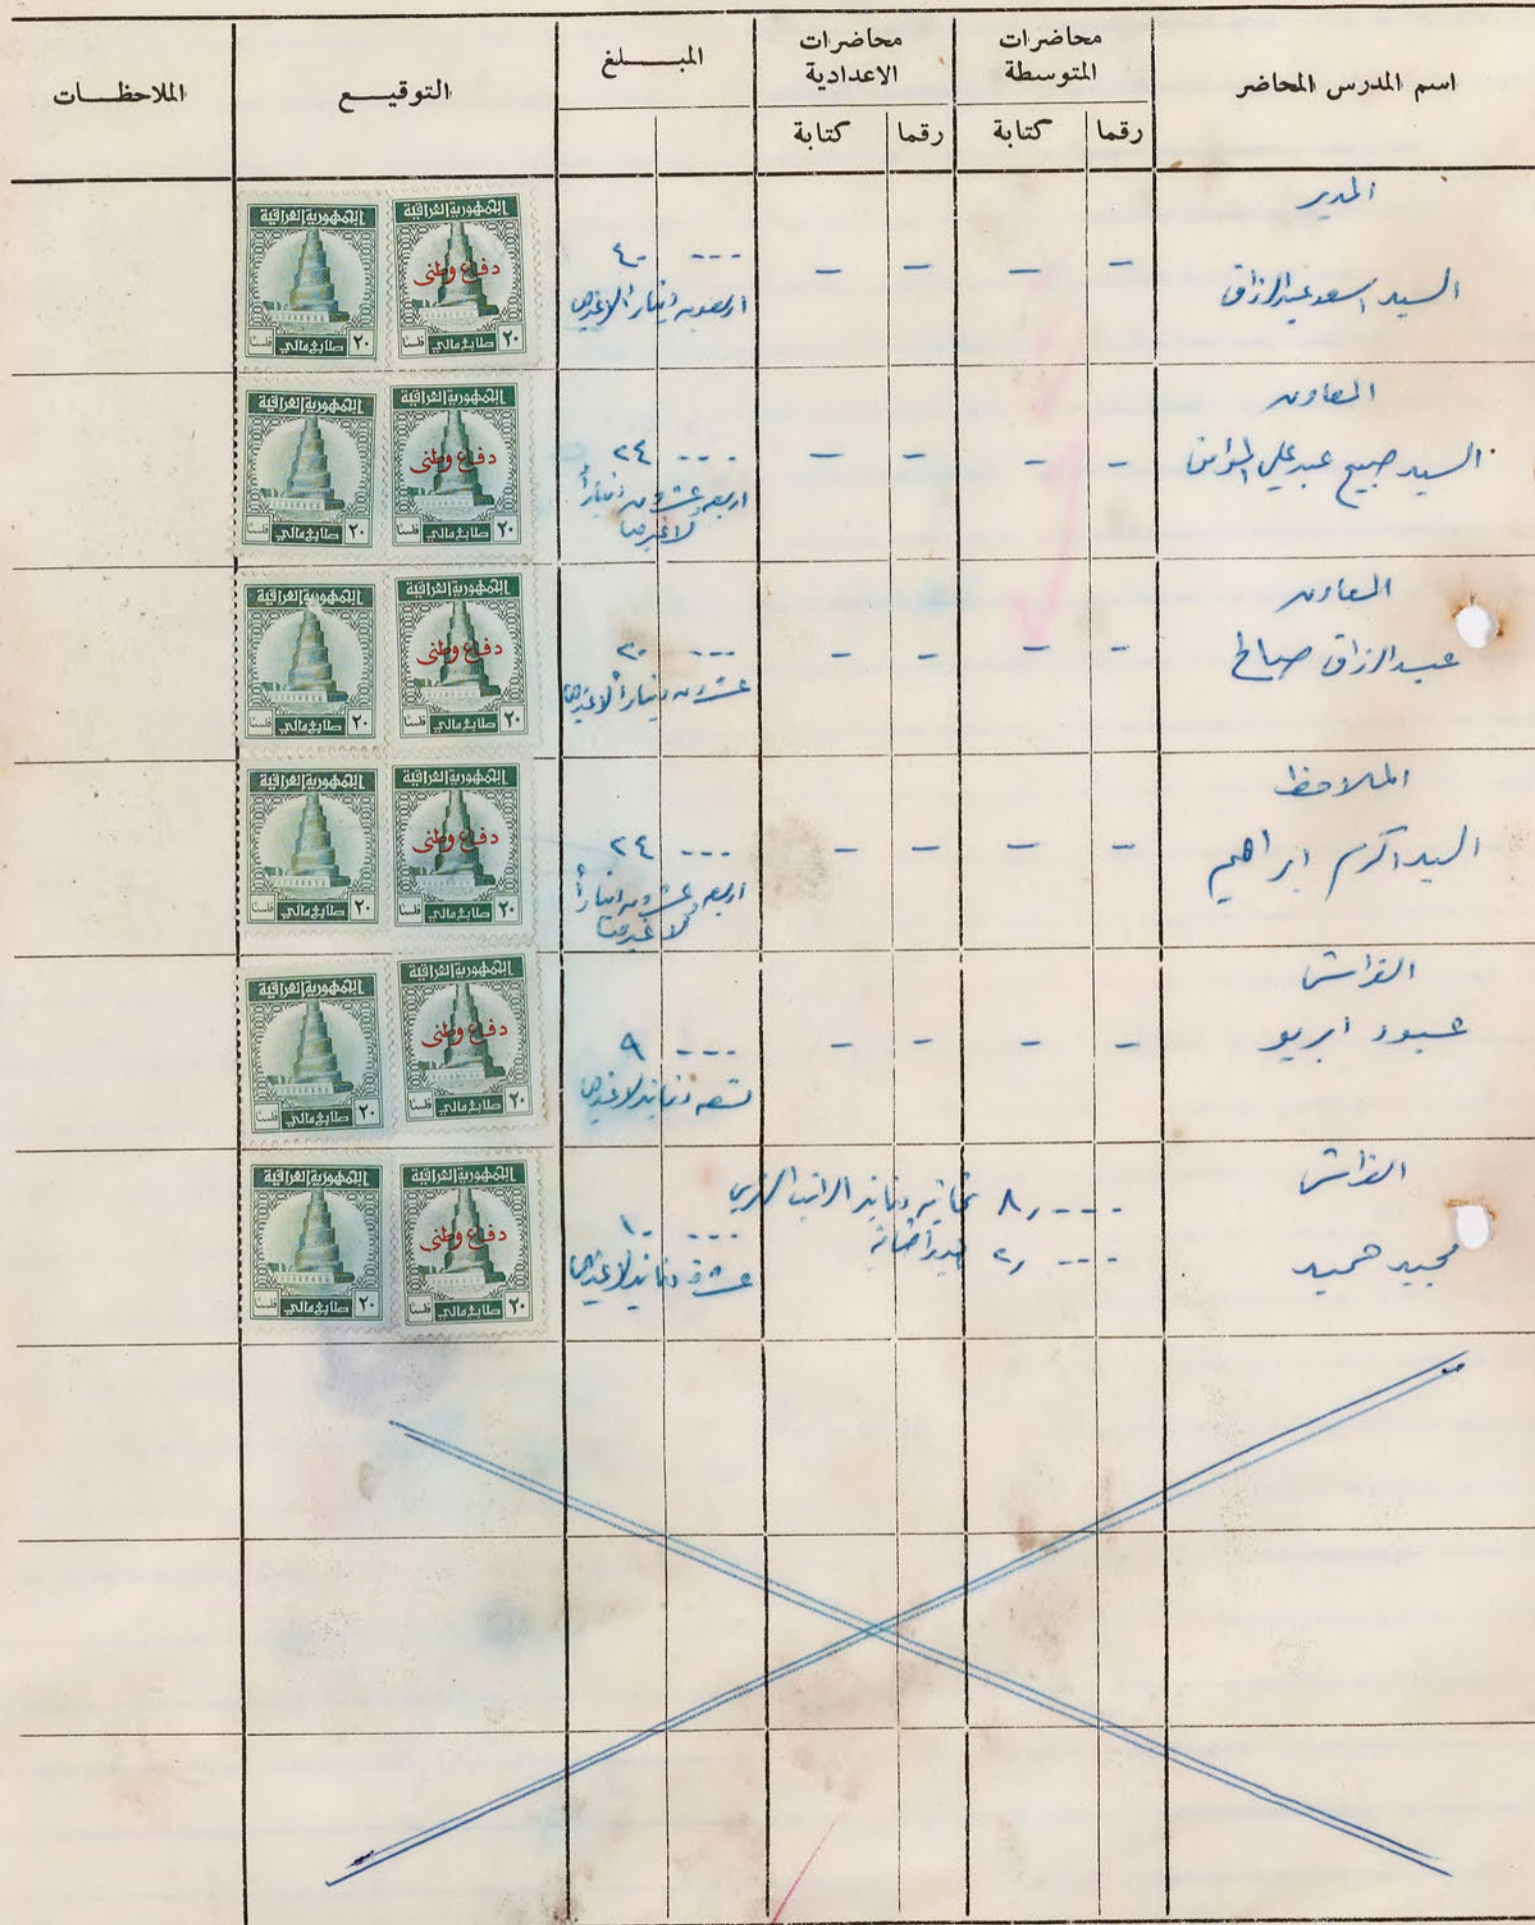 اسم المدرس المحاضر
محاضرات المتوسطة
رقما
كتابة
محاضرات الاعدادية
رقما
كتابة
المبـــــلغ
التوقيـــع
الملاحظـــات
المدير
السيد اسعد عبدالرزاق
-
-
-
-
--- ٤٠
اربعون ديناراً لاغيرها
الجمهورية العراقية
دفاع وطني
٢٠ طابع مالي فلسًا
الجمهورية العراقية
٢٠ طابع مالي فلسًا
المعاون
السيد صبيح عبد علي
-
-
-
-
--- ٢٤
اربعه وعشرون ديناراً
لاغيرها
الجمهورية العراقية
دفاع وطني
٢٠ طابع مالي فلسًا
الجمهورية العراقية
٢٠ طابع مالي فلسًا
المعاون
عبدالرزاق صالح
-
-
-
-
--- ٢٠
عشرون ديناراً لاغيرها
الجمهورية العراقية
دفاع وطني
٢٠ طابع مالي فلسًا
الجمهورية العراقية
٢٠ طابع مالي فلسًا
الملاحظ
السيد اكرم ابراهيم
-
-
-
-
--- ٢٤
اربعه وعشرون ديناراً
لاغيرها
الجمهورية العراقية
دفاع وطني
٢٠ طابع مالي فلسًا
الجمهورية العراقية
٢٠ طابع مالي فلسًا
الفراش
عبود
-
-
-
-
--- ٩
تسعه دنانير لاغيرها
الجمهورية العراقية
دفاع وطني
٢٠ طابع مالي فلسًا
الجمهورية العراقية
٢٠ طابع مالي فلسًا
الفراش
مجيد حميد
٨,--- ثمانيه دنانير الراتب الشهري
٢,---
--- ١٠
عشرة دنانير لاغيرها
الجمهورية العراقية
دفاع وطني
٢٠ طابع مالي فلسًا
الجمهورية العراقية
٢٠ طابع مالي فلسًا